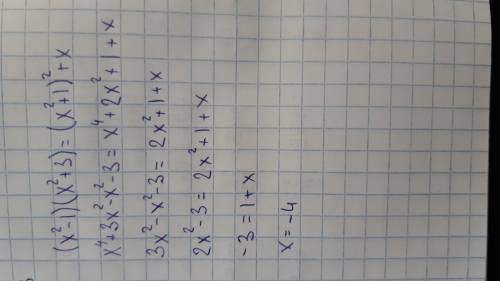 (x²-1)(x²+3)=(x²+1)²+x
x⁴+3x²-x²-3=x⁴+2x²+1+x
3x²-x²-3=2x²+1+x
2x²-3=2x²+1+x
-3=1+x
x=-4